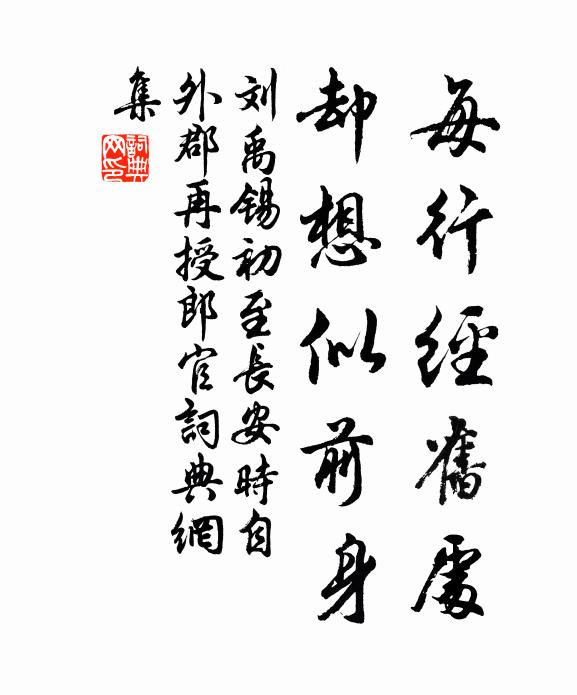 每行經舊處
却想似前身
刘禹锡初至長安時自
外郡再授郎官詞典網
集
詞典
网印